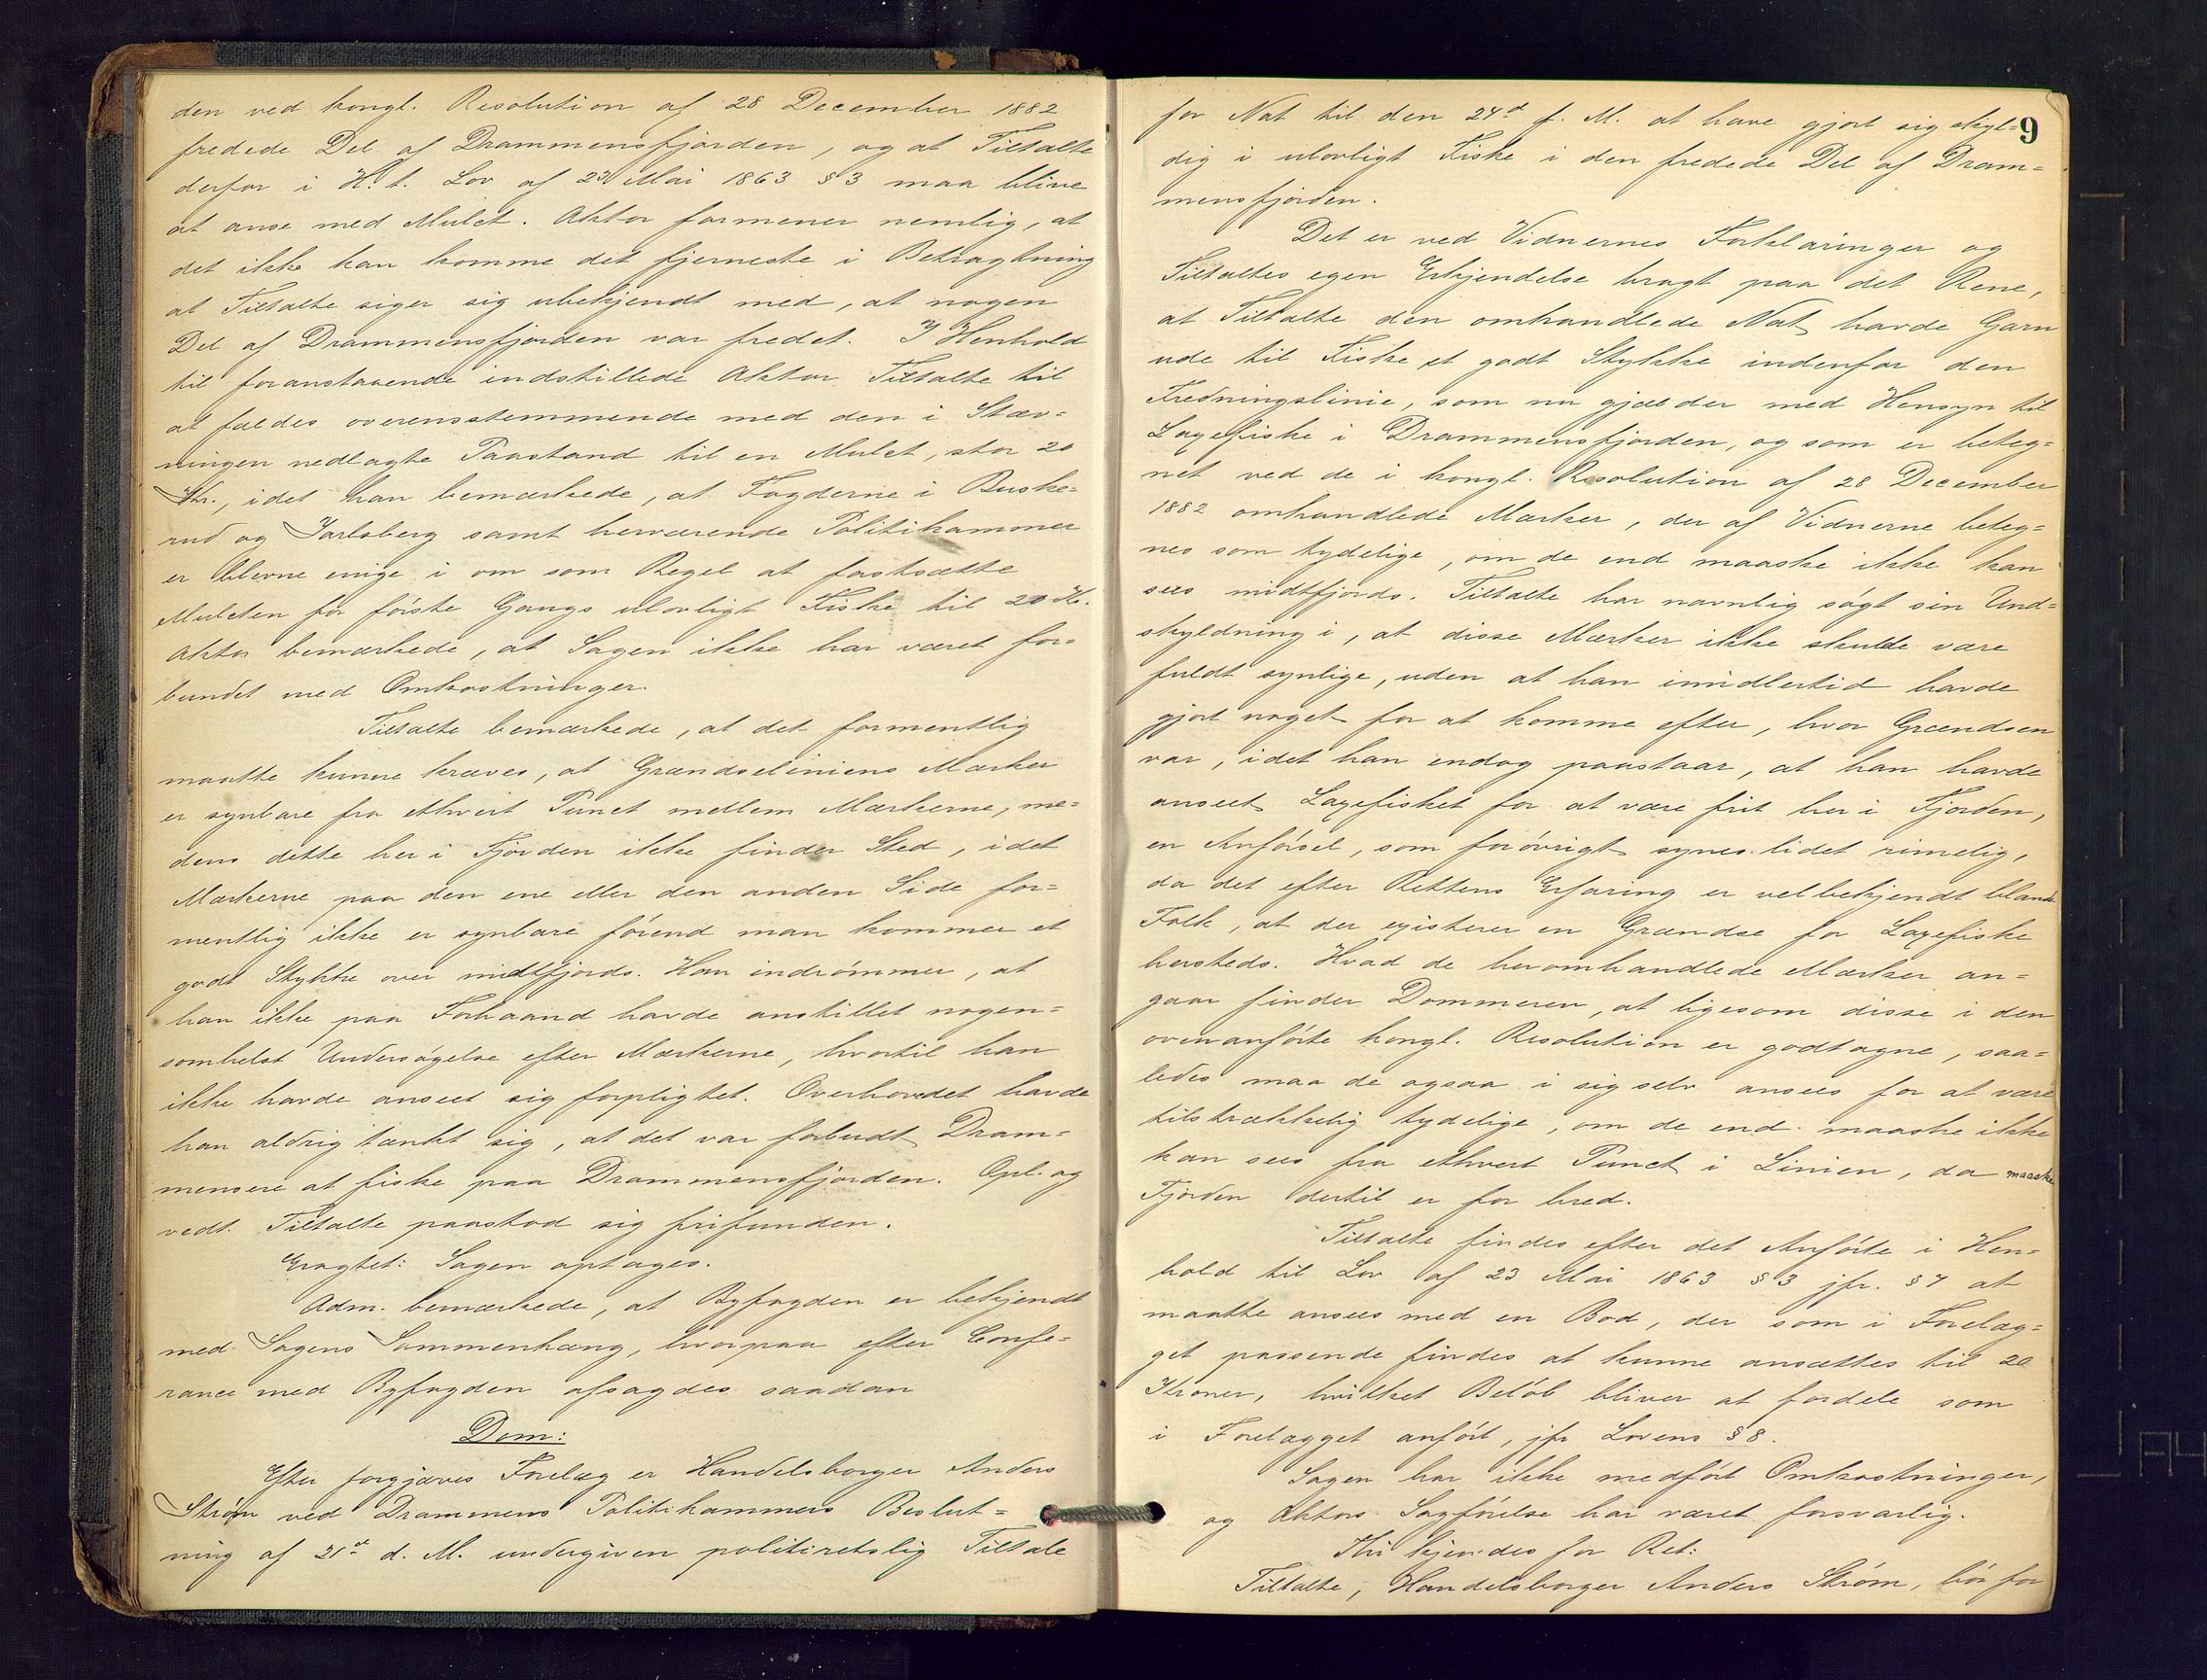 den ved kongl. Resolution af 28 December 1882
fredede Del af Drammensfjorden, og at Tiltalte
derfor i H. t. Lov af 23 Mai 1863 § 3 maa blive
at anse med Mulct. Aktor formener nemlig, at
det ikke kan komme det fjerneste i Betragtning
at Tiltalte siger sig ubekjendt med, at nogen
Del af Drammensfjorden var fredet. I Henhold
til foranstaaende indstillede Aktor Tiltalte til
at fældes overensstemmende med den i Stæv=
ningen nedlagte Paastand til en Mulct, stor 20
Kr., idet han bemærkede, at Fogderne i Buske=
rud og Jarlsberg samt herværende Politikammer
er blevne enige i om som Regel at fastsætte
Mulcten for første Gangs ulovligt Fiske til 20 Kr.
Aktor bemærkede, at Sagen ikke har været for=
bundet med Omkostninger.
Tiltalte bemærkede, at det formentlig
maatte kunne kræves, at Grændseliniens Mærker
er synbare fra ethvert Punct mellem Mærkerne, me=
dens dette her i Fjorden ikke finder Sted, idet
Mærkerne paa den ene eller den anden Side for=
mentlig ikke er synbare førend man kommer et
godt Stykke over midtfjords. Han indrømmer, at
han ikke paa Forhaand havde anstillet nogen=
somhelst Undersøgelse efter Mærkerne, hvortil han
ikke havde anseet sig forpligtet. Overhovedet havde
han aldrig tænkt sig, at det var forbudt Dram=
mensere at fiske paa Drammensfjorden. Opl. og
vedt. Tiltalte paastod sig frifunden.
Eragtet: Sagen optages.
Adm. bemærkede, at Byfogden er bekjendt
med Sagens Sammenhæng, hvorpaa efter Confe=
rance med Byfogden afsagdes saadan
Dom:
Efter forgjæves Forelæg er Handelsborger Anders
Strøm ved Drammens Politikammers Beslut=
ning af 21de d. M. undergiven politiretslig Tiltale
9
for Nat til den 24d f. M. at have gjort sig skyl=
dig i ulovligt Fiske i den fredede Del af Dram=
mensfjorden.
Det er ved Vidnernes Forklaringer og
Tiltaltes egen Erkjendelse bragt paa det Rene,
at Tiltalte den omhandlede Nat havde Garn
ude til Fiske et godt Stykke indenfor den
Fredningslinie, som nu gjælder med Hensyn til
Laxefiske i Drammensfjorden, og som er beteg=
net ved de i kongl. Resolution af 28 December
1882 omhandlede Mærker, der af Vidnerne beteg=
nes som tydelige, om de end maaske ikke kan
sees midtfjords. Tiltalte har navnlig søgt sin Und=
skyldning i, at disse Mærker ikke skulde være
fuldt synlige, uden at han imidlertid havde
gjort noget for at komme efter, hvor Grændsen
var, idet han endog paastaar, at han havde
anseet Laxefisket for at være frit her i Fjorden,
en Anførsel, som forøvrigt synes lidet rimelig,
da det efter Rettens Erfaring er velbekjendt blandt
Folk, at der existerer en Grændse for Laxefiske
hersteds. Hvad de heromhandlede Mærker an=
gaar finder Dommeren, at ligesom disse i den
ovenanførte kongl. Resolution er godtagne, saa=
ledes maa de ogsaa i sig selv ansees for at være
tilstrækkelig tydelige, om de end maaske ikke
kan sees fra ethvert Punct i Linien, da maaske
Fjorden dertil er for bred.
Tiltalte findes efter det Anførte i Hen=
hold til Lov af 23 Mai 1863 § 3 jfr. § 7 at
maatte ansees med en Bod, der som i Forelæg=
get passende findes at kunne ansættes til 20
Kroner, hvilket Beløb bliver at fordele som
i Forelægget anført, jfr Lovens § 8.
Sagen har ikke medført Omkostninger,
og Aktors Sagførelse har været forsvarlig.
Thi kjendes for Ret:
Tiltalte, Handelsborger Anders Strøm, bør for